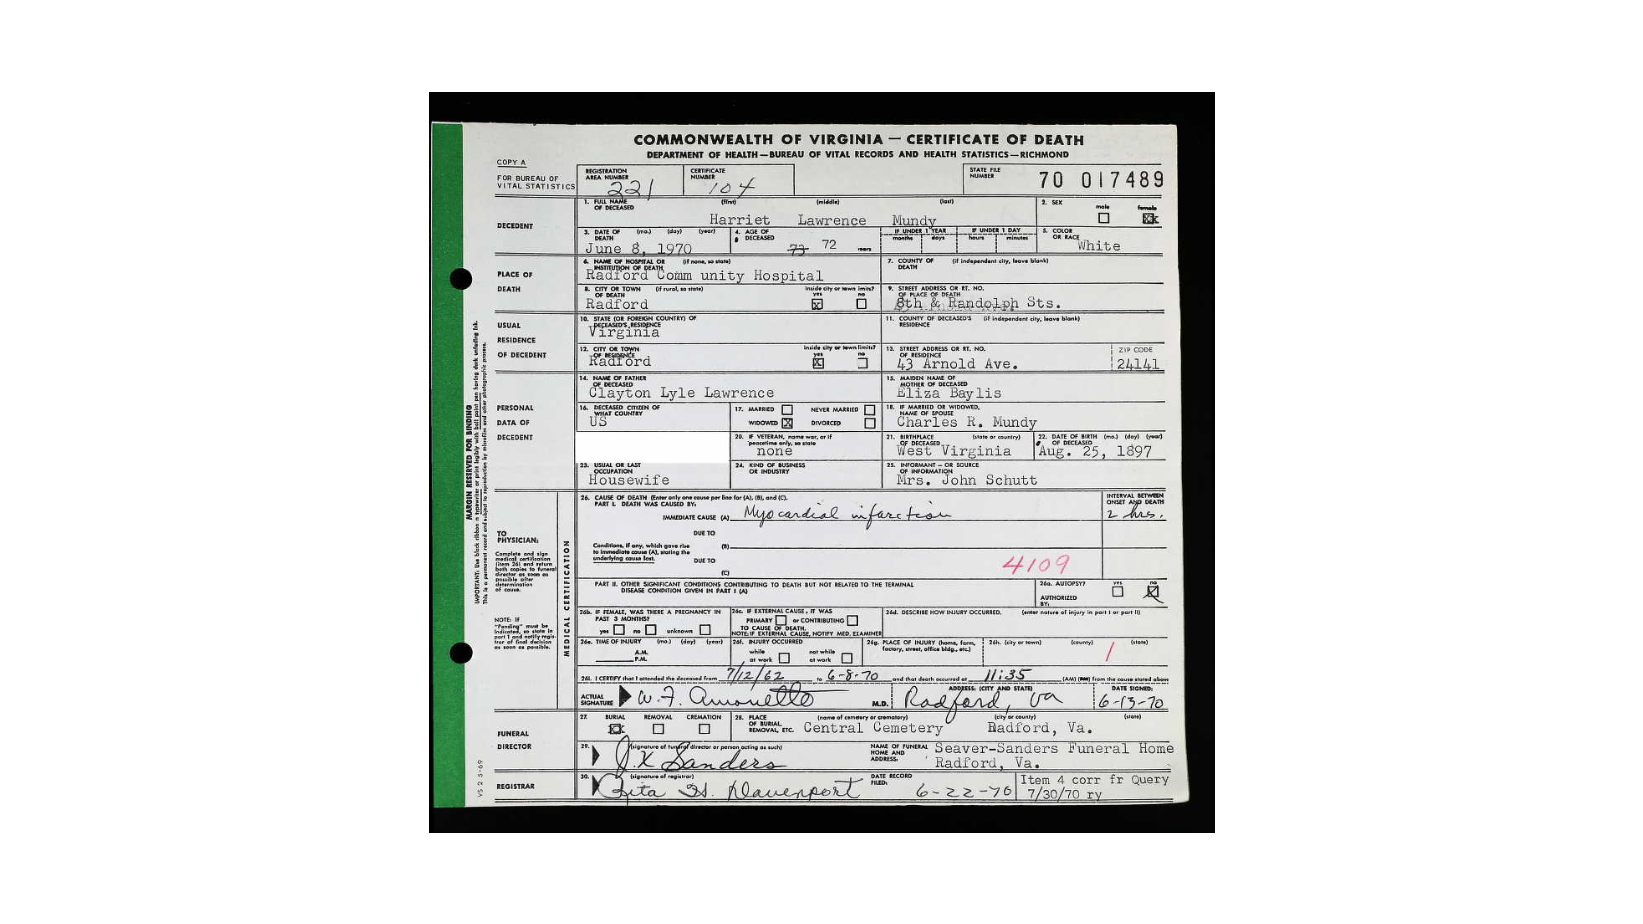 COMMONWEALTH OF VIRGINIA — CERTIFICATE OF DEATH
DEPARTMENT OF HEALTH—BUREAU OF VITAL RECORDS AND HEALTH STATISTICS—RICHMOND
COPY A
FOR BUREAU OF VITAL STATISTICS
REGISTRATION AREA NUMBER 221
CERTIFICATE NUMBER 104
STATE FILE NUMBER 70 017489
DECEDENT
1. FULL NAME OF DECEASED (first) (middle) (last)
Harriet Lawrence Mundy
2. SEX male female XX
3. DATE OF DEATH (mo.) (day) (year)
June 8, 1970
4. AGE OF DECEASED 73 72 years
IF UNDER 1 YEAR months days
IF UNDER 1 DAY hours minutes
5. COLOR OR RACE White
PLACE OF DEATH
6. NAME OF HOSPITAL OR INSTITUTION OF DEATH (if none, so state)
Radford Comm unity Hospital
7. COUNTY OF DEATH (if independent city, leave blank)
8. CITY OR TOWN OF DEATH (if rural, so state)
Radford
inside city or town limits? yes X no
9. STREET ADDRESS OR RT. NO. OF PLACE OF DEATH
8th & Randolph Sts.
USUAL RESIDENCE OF DECEDENT
10. STATE (OR FOREIGN COUNTRY) OF DECEASED'S RESIDENCE
Virginia
11. COUNTY OF DECEASED'S RESIDENCE (if independent city, leave blank)
12. CITY OR TOWN OF RESIDENCE
Radford
inside city or town limits? yes X no
13. STREET ADDRESS OR RT. NO. OF RESIDENCE
43 Arnold Ave.
ZIP CODE
24141
PERSONAL DATA OF DECEDENT
14. NAME OF FATHER OF DECEASED
Clayton Lyle Lawrence
15. MAIDEN NAME OF MOTHER OF DECEASED
Eliza Baylis
16. DECEASED CITIZEN OF WHAT COUNTRY
US
17. MARRIED NEVER MARRIED
WIDOWED X DIVORCED
18. IF MARRIED OR WIDOWED, NAME OF SPOUSE
Charles R. Mundy
20. IF VETERAN, name war, or if peacetime only, so state
none
21. BIRTHPLACE OF DECEASED (state or country)
West Virginia
22. DATE OF BIRTH OF DECEASED (mo.) (day) (year)
Aug. 25, 1897
23. USUAL OR LAST OCCUPATION
Housewife
24. KIND OF BUSINESS OR INDUSTRY
25. INFORMANT — OR SOURCE OF INFORMATION
Mrs. John Schutt
TO PHYSICIAN:
Complete and sign medical certification (item 26) and return both copies to funeral director as soon as possible after determination of cause.
NOTE: If "Pending" must be indicated, so state in part I and notify registrar of final decision as soon as possible.
MEDICAL CERTIFICATION
26. CAUSE OF DEATH (Enter only one cause per line for (A), (B), and (C).
PART I. DEATH WAS CAUSED BY:
INTERVAL BETWEEN ONSET AND DEATH
IMMEDIATE CAUSE (A) Myocardial infarction 2 hrs.
DUE TO
Conditions, if any, which gave rise to immediate cause (A), stating the underlying cause last.
(B)
DUE TO
(C)
4109
PART II. OTHER SIGNIFICANT CONDITIONS CONTRIBUTING TO DEATH BUT NOT RELATED TO THE TERMINAL DISEASE CONDITION GIVEN IN PART I (A)
26a. AUTOPSY? yes no X
AUTHORIZED BY:
26b. IF FEMALE, WAS THERE A PREGNANCY IN PAST 3 MONTHS?
yes no unknown
26c. IF EXTERNAL CAUSE, IT WAS
PRIMARY or CONTRIBUTING
TO CAUSE OF DEATH.
NOTE: IF EXTERNAL CAUSE, NOTIFY MED. EXAMINER
26d. DESCRIBE HOW INJURY OCCURRED. (enter nature of injury in part I or part II)
26e. TIME OF INJURY (mo.) (day) (year)
A.M.
P.M.
26f. INJURY OCCURRED
while at work not while at work
26g. PLACE OF INJURY (home, farm, factory, street, office bldg., etc.)
26h. (city or town) (county) (state)
1
26i. I CERTIFY that I attended the deceased from 7/12/62 to 6-8-70 and that death occurred at 11:35 (AM) (PM) from the cause stated above
ACTUAL SIGNATURE W. F. Amonette M.D.
ADDRESS: (CITY AND STATE)
Radford, Va
DATE SIGNED:
6-13-70
FUNERAL DIRECTOR
27. BURIAL X REMOVAL CREMATION
28. PLACE OF BURIAL, REMOVAL, ETC. (name of cemetery or crematory) (city or county) (state)
Central Cemetery Radford, Va.
29. (signature of funeral director or person acting as such)
J. K Sanders
NAME OF FUNERAL HOME AND ADDRESS:
Seaver-Sanders Funeral Home
Radford, Va.
REGISTRAR
30. (signature of registrar)
Rita H. Davenport
DATE RECORD FILED:
6-22-70
Item 4 corr fr Query
7/30/70 ry
MARGIN RESERVED FOR BINDING
VS 2 5-69